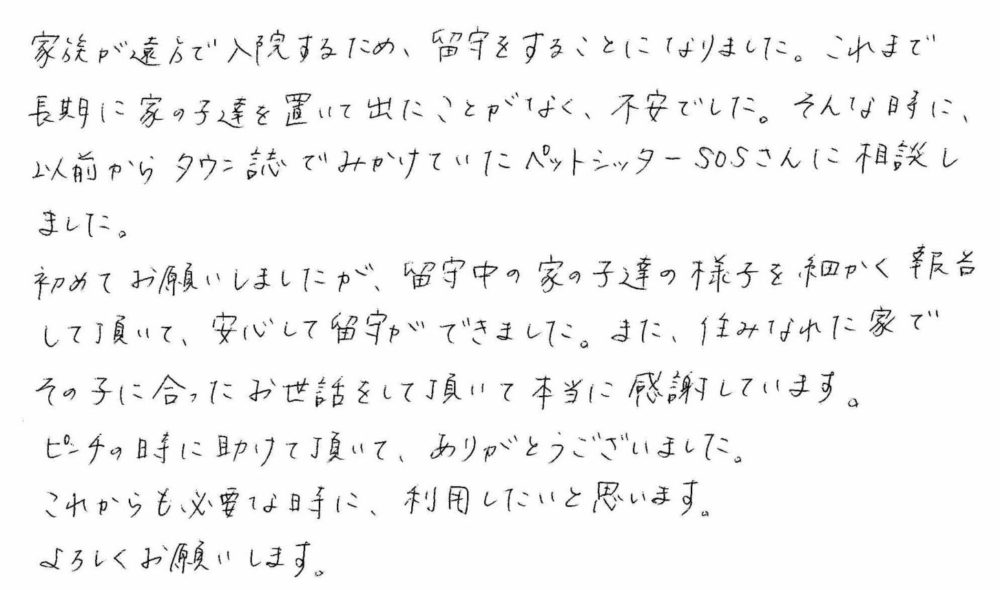 家族が遠方で入院するため、留守をすることになりました。これまで
長期に家の子達を置いて出たことがなく、不安でした。そんな時に、
以前からタウン誌でみかけていたペットシッターSOSさんに相談し
ました。
初めてお願いしましたが、留守中の家の子達の様子を細かく報告
して頂いて、安心して留守ができました。また、住みなれた家で
その子に合ったお世話をして頂いて本当に感謝しています。
ピンチの時に助けて頂いて、ありがとうございました。
これからも必要な時に、利用したいと思います。
よろしくお願いします。